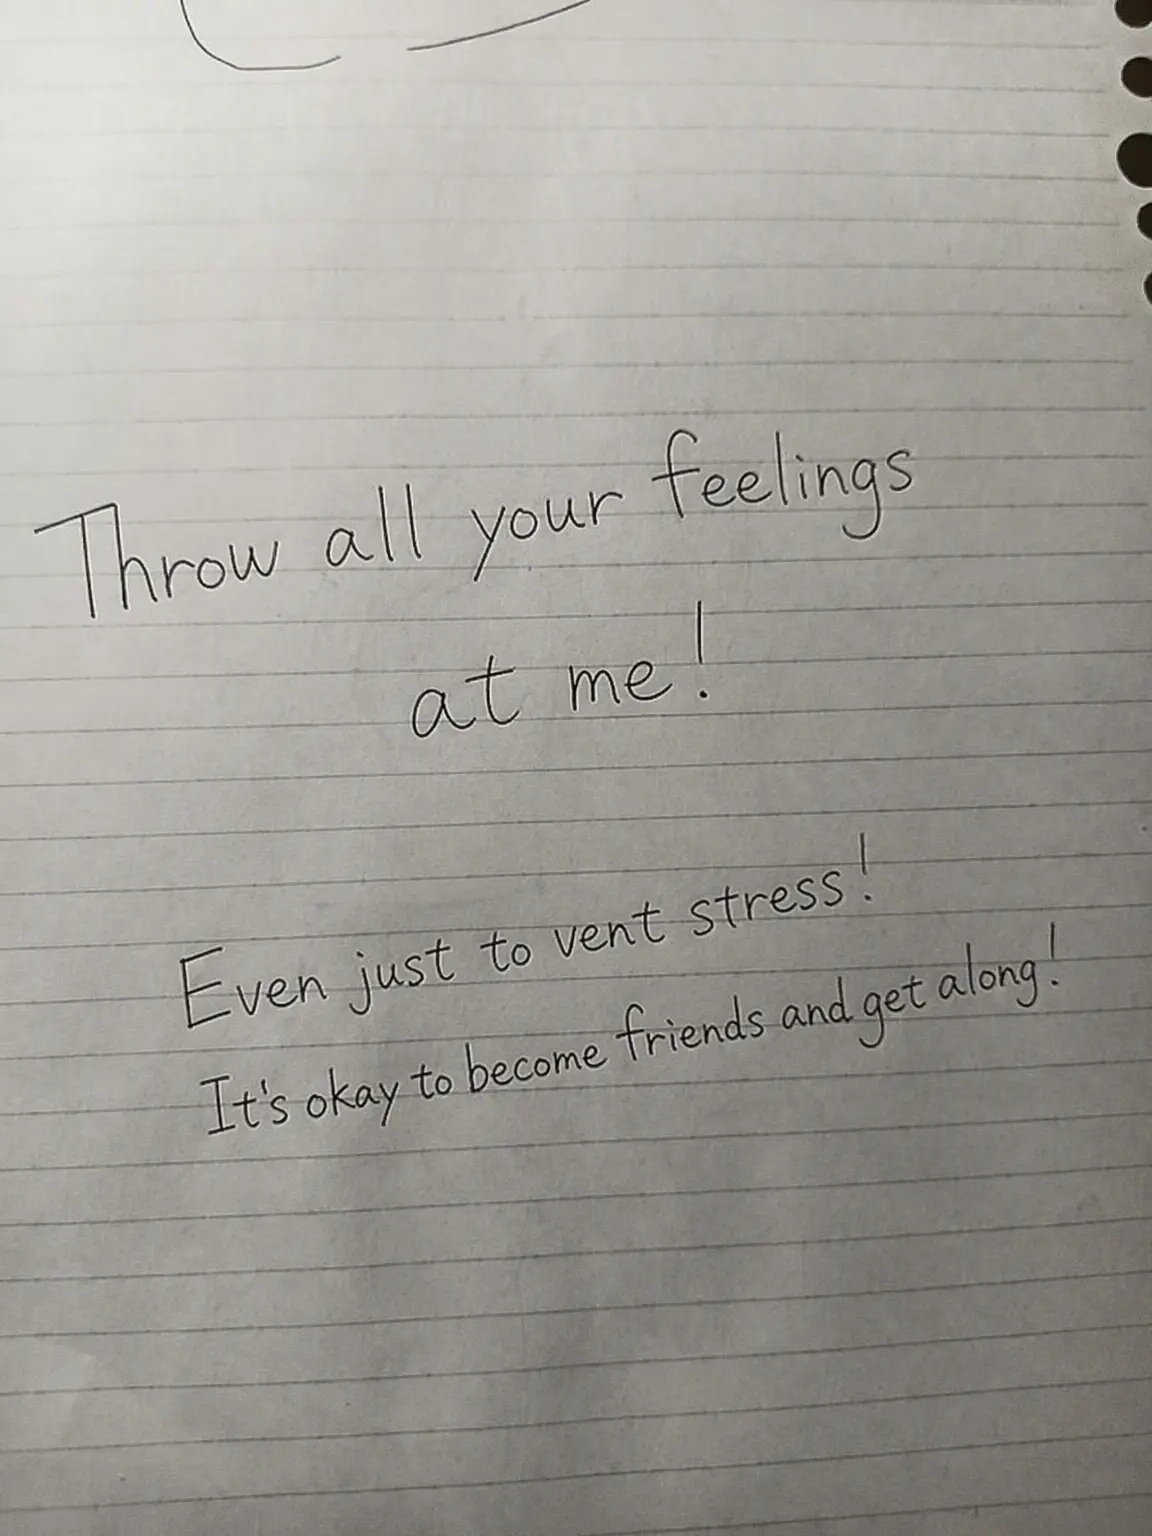 Throw all your feelings
at me!
Even just to vent stress!
It's okay to become friends and get along!